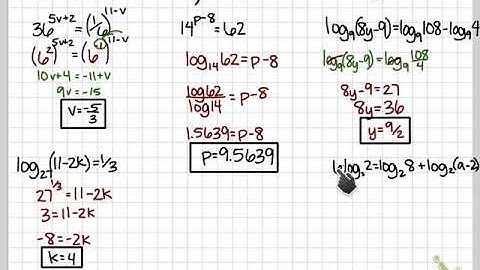 36^(5v+2) = (1/6)^(11-v)
(6²)^(5v+2) = (6^(-1))^(11-v)
10v+4 = -11+v
9v = -15
v = -5/3
14^(p-8) = 62
log₁₄62 = p-8
log62/log14 = p-8
1.5639 = p-8
p = 9.5639
log₉(8y-9) = log₉108 - log₉4
log₉(8y-9) = log₉ 108/4
8y-9 = 27
8y = 36
y = 9/2
log₂₇(11-2k) = 1/3
27^(1/3) = 11-2k
3 = 11-2k
-8 = -2k
k = 4
log₂2 = log₂8 + log₂(a-2)